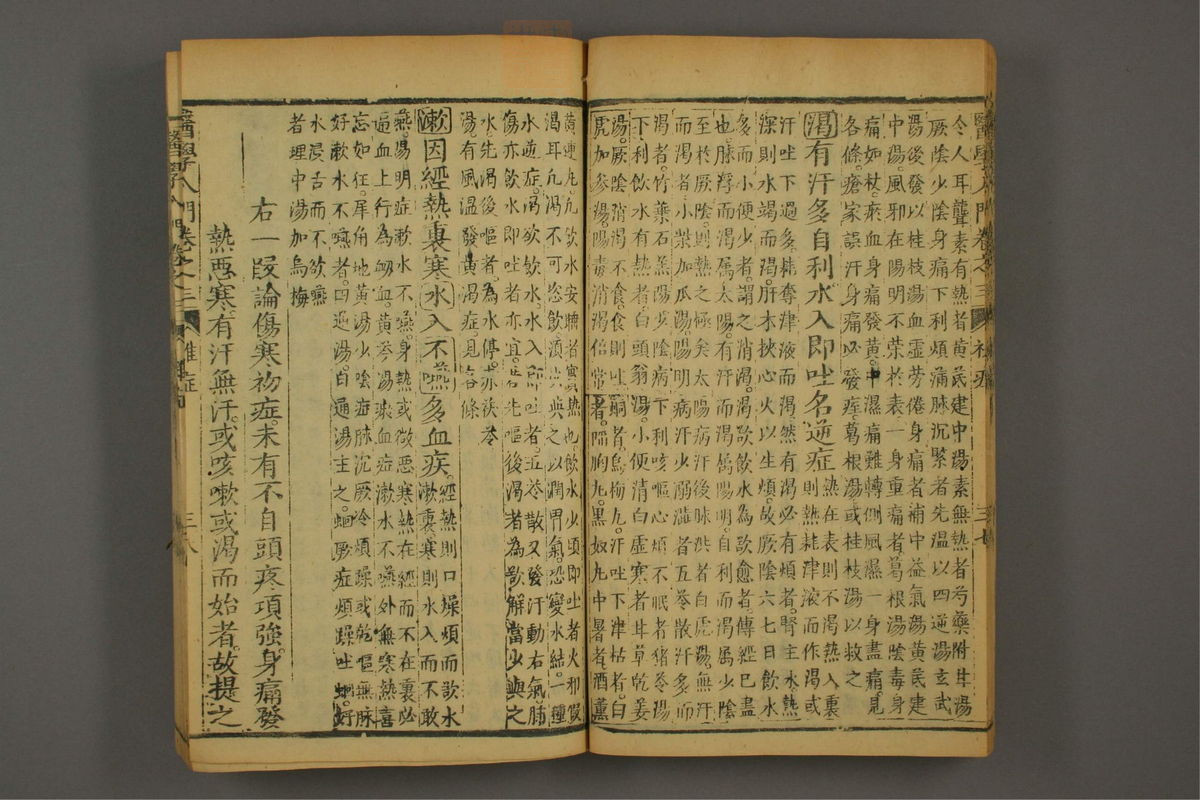 醫學入門 卷之三 初症 三七
令人耳聾素有熱者黃芪建中湯素無熱者芍藥附子湯
厥陰少陰身痛下利煩滿脉沉緊者先溫以四逆湯玄武
湯後發以桂枝湯血虛勞倦身痛者補中益氣湯黃芪建
中湯風邪在陽明不榮於表一身重痛者葛根湯陰毒身
痛如杖瘀血身痛發黃中濕痛難轉側風濕一身盡痛見
各條瘡家誤汗身痛必發痓葛根湯或桂枝湯以救之
渴有汗多自利水入即吐名逆症熱在表則不渴熱入裏
則熱耗津液而作渴或
汗吐下過多耗奪津液而渴然有渴必有煩者腎主水熱
深則水竭而渴肝木挾心火以生煩故厥陰六七日飲水
多而小便少者謂之消渴渴欲飲水為欲愈者傳經已盡
也脉浮而渴属太陽有汗而渴属陽明自利而渴属少陰
至於厥陰則熱之極矣太陽病汗後脉洪者白虎湯無汗
而渴者小柴加瓜蔞陽明病汗少溺澁者五苓散汗多而
渴者竹葉石羔湯少陰病下利咳嘔心煩不眠者猪苓湯
下利飲水有熱者白頭翁湯小便清白虛寒者甘草乾姜
湯厥陰消渴不食食則吐蛔者烏梅丸汗吐下津枯者白
虎加參湯陽毒消渴倍常者陷胸丸黑奴丸中暑者酒蒸
黃連丸凡飲水安睡者實熱也飲水少頃即吐者火邪假
渴耳凡渴不可恣飲須少與之以潤胃氣恐變水結一種
水逆症渴欲飲水水入即吐者五苓散又發汗動右氣肺
傷亦飲水即吐者亦宜若先嘔後渴者為欲解當少與之
水先渴後嘔者為水停赤茯苓
湯有風溫發黃渴症見各條
漱因經熱裏寒水入不嚥多血疾經熱則口燥煩而欲水
漱裏寒則水入而不敢
嚥陽明症漱水不嚥身熱或微惡寒熱在經而不在裏必
逼血上行為衂血黃芩湯畜血症漱水不嚥外無寒熱喜
忘如狂犀角地黃湯少陰症脉沉厥冷煩躁或乾嘔無脉
好漱水不嚥者四逆湯白通湯主之蛔厥症煩躁吐蛔好
水浸舌而不欲嚥
者理中湯加烏梅
右一段論傷寒初症未有不自頭疼項強身痛發
熱惡寒有汗無汗或咳嗽或渴而始者故提之
醫學入門 卷之三 雜症 三八